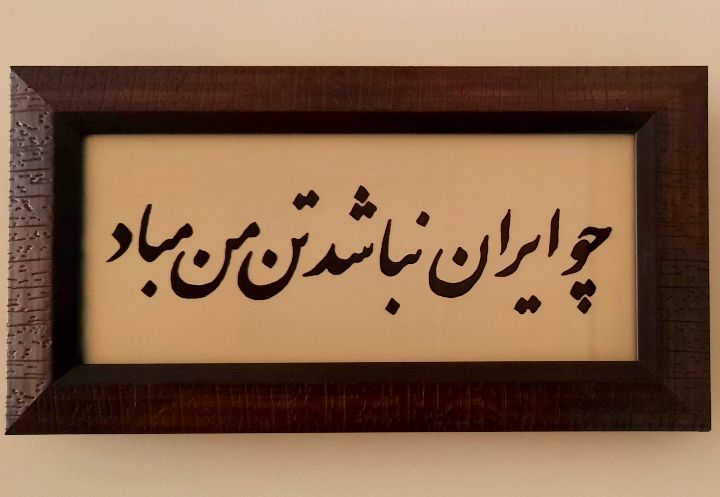 چو ایران نباشد تن من مباد